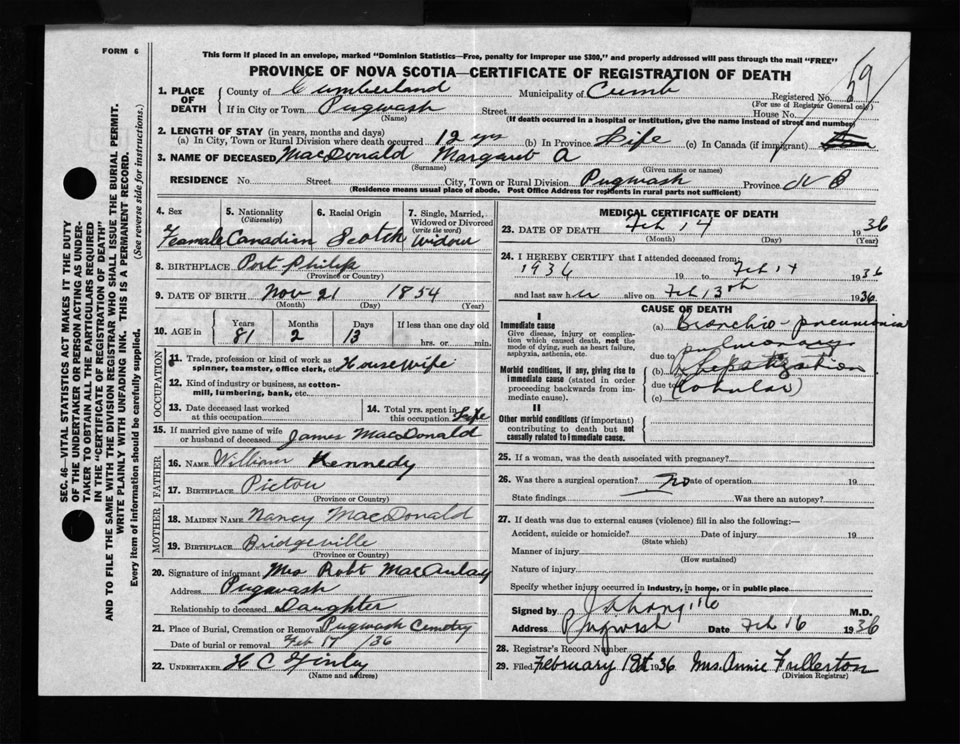 FORM 6
This form if placed in an envelope, marked "Dominion Statistics—Free, penalty for improper use $300," and properly addressed will pass through the mail "FREE"
PROVINCE OF NOVA SCOTIA—CERTIFICATE OF REGISTRATION OF DEATH
59
1. PLACE OF DEATH County of Cumberland Municipality of Cumb Registered No.
(For use of Registrar General only)
If in City or Town Pugwash Street House No.
(Name) (If death occurred in a hospital or institution, give the name instead of street and number)
2. LENGTH OF STAY (in years, months and days)
(a) In City, Town or Rural Division where death occurred 12 yrs (b) In Province Life (c) In Canada (if immigrant)
3. NAME OF DECEASED MacDonald Margaret A
(Surname) (Given name or names)
RESIDENCE No. Street City, Town or Rural Division Pugwash Province
(Residence means usual place of abode. Post Office Address for residents in rural parts not sufficient)
4. Sex Feamale
5. Nationality (Citizenship) Canadian
6. Racial Origin Scotch
7. Single, Married, Widowed or Divorced (write the word) Widow
8. BIRTHPLACE Port Philip
(Province or Country)
9. DATE OF BIRTH Nov 21 1854
(Month) (Day) (Year)
10. AGE in Years 81 Months 2 Days 13 If less than one day old hrs. or min.
OCCUPATION
11. Trade, profession or kind of work as spinner, teamster, office clerk, etc House Wife
12. Kind of industry or business, as cotton-mill, lumbering, bank, etc.
13. Date deceased last worked at this occupation
14. Total yrs. spent in this occupation Life
15. If married give name of wife or husband of deceased James MacDonald
FATHER
16. NAME William Kennedy
17. BIRTHPLACE Pictou
(Province or Country)
MOTHER
18. MAIDEN NAME Nancy MacDonald
19. BIRTHPLACE Bridgeville
(Province or Country)
20. Signature of informant Mrs Robt MacAulay
Address Pugwash
Relationship to deceased Daughter
21. Place of Burial, Cremation or Removal Pugwash Cemetry
Date of burial or removal Feb 17 /36
22. UNDERTAKER H C
(Name and address)
MEDICAL CERTIFICATE OF DEATH
23. DATE OF DEATH Feb 14 1936
(Month) (Day) (Year)
24. I HEREBY CERTIFY that I attended deceased from:
1936 19 to Feb 1936
and last saw her alive on Feb 13th 1936
CAUSE OF DEATH
I
Immediate cause
Give disease, injury or complication which caused death, not the mode of dying, such as heart failure, asphyxia, asthenia, etc.
(a) Bronchio-pneumonia
due to pulmonary
Morbid conditions, if any, giving rise to immediate cause (stated in order proceeding backwards from immediate cause).
(b) Hepatization
due to (lobular)
(c)
II
Other morbid conditions (if important) contributing to death but not causally related to immediate cause.
25. If a woman, was the death associated with pregnancy?
26. Was there a surgical operation? No Date of operation 19
State findings Was there an autopsy?
27. If death was due to external causes (violence) fill in also the following:—
Accident, suicide or homicide? Date of injury 19
(State which)
Manner of injury
(How sustained)
Nature of injury
Specify whether injury occurred in industry, in home, or in public place
Signed by M.D.
Address Pugwash Date Feb 16 1936
28. Registrar's Record Number
29. Filed February 1936 Mrs. Annie Fullerton
(Division Registrar)
SEC. 46—VITAL STATISTICS ACT MAKES IT THE DUTY
OF THE UNDERTAKER OR PERSON ACTING AS UNDER-
TAKER TO OBTAIN ALL THE PARTICULARS REQUIRED
IN THE "CERTIFICATE OF REGISTRATION OF DEATH"
AND TO FILE THE SAME WITH THE DIVISION REGISTRAR WHO SHALL ISSUE THE BURIAL PERMIT.
WRITE PLAINLY WITH UNFADING INK. THIS IS A PERMANENT RECORD.
Every item of information should be carefully supplied. (See reverse side for instructions.)